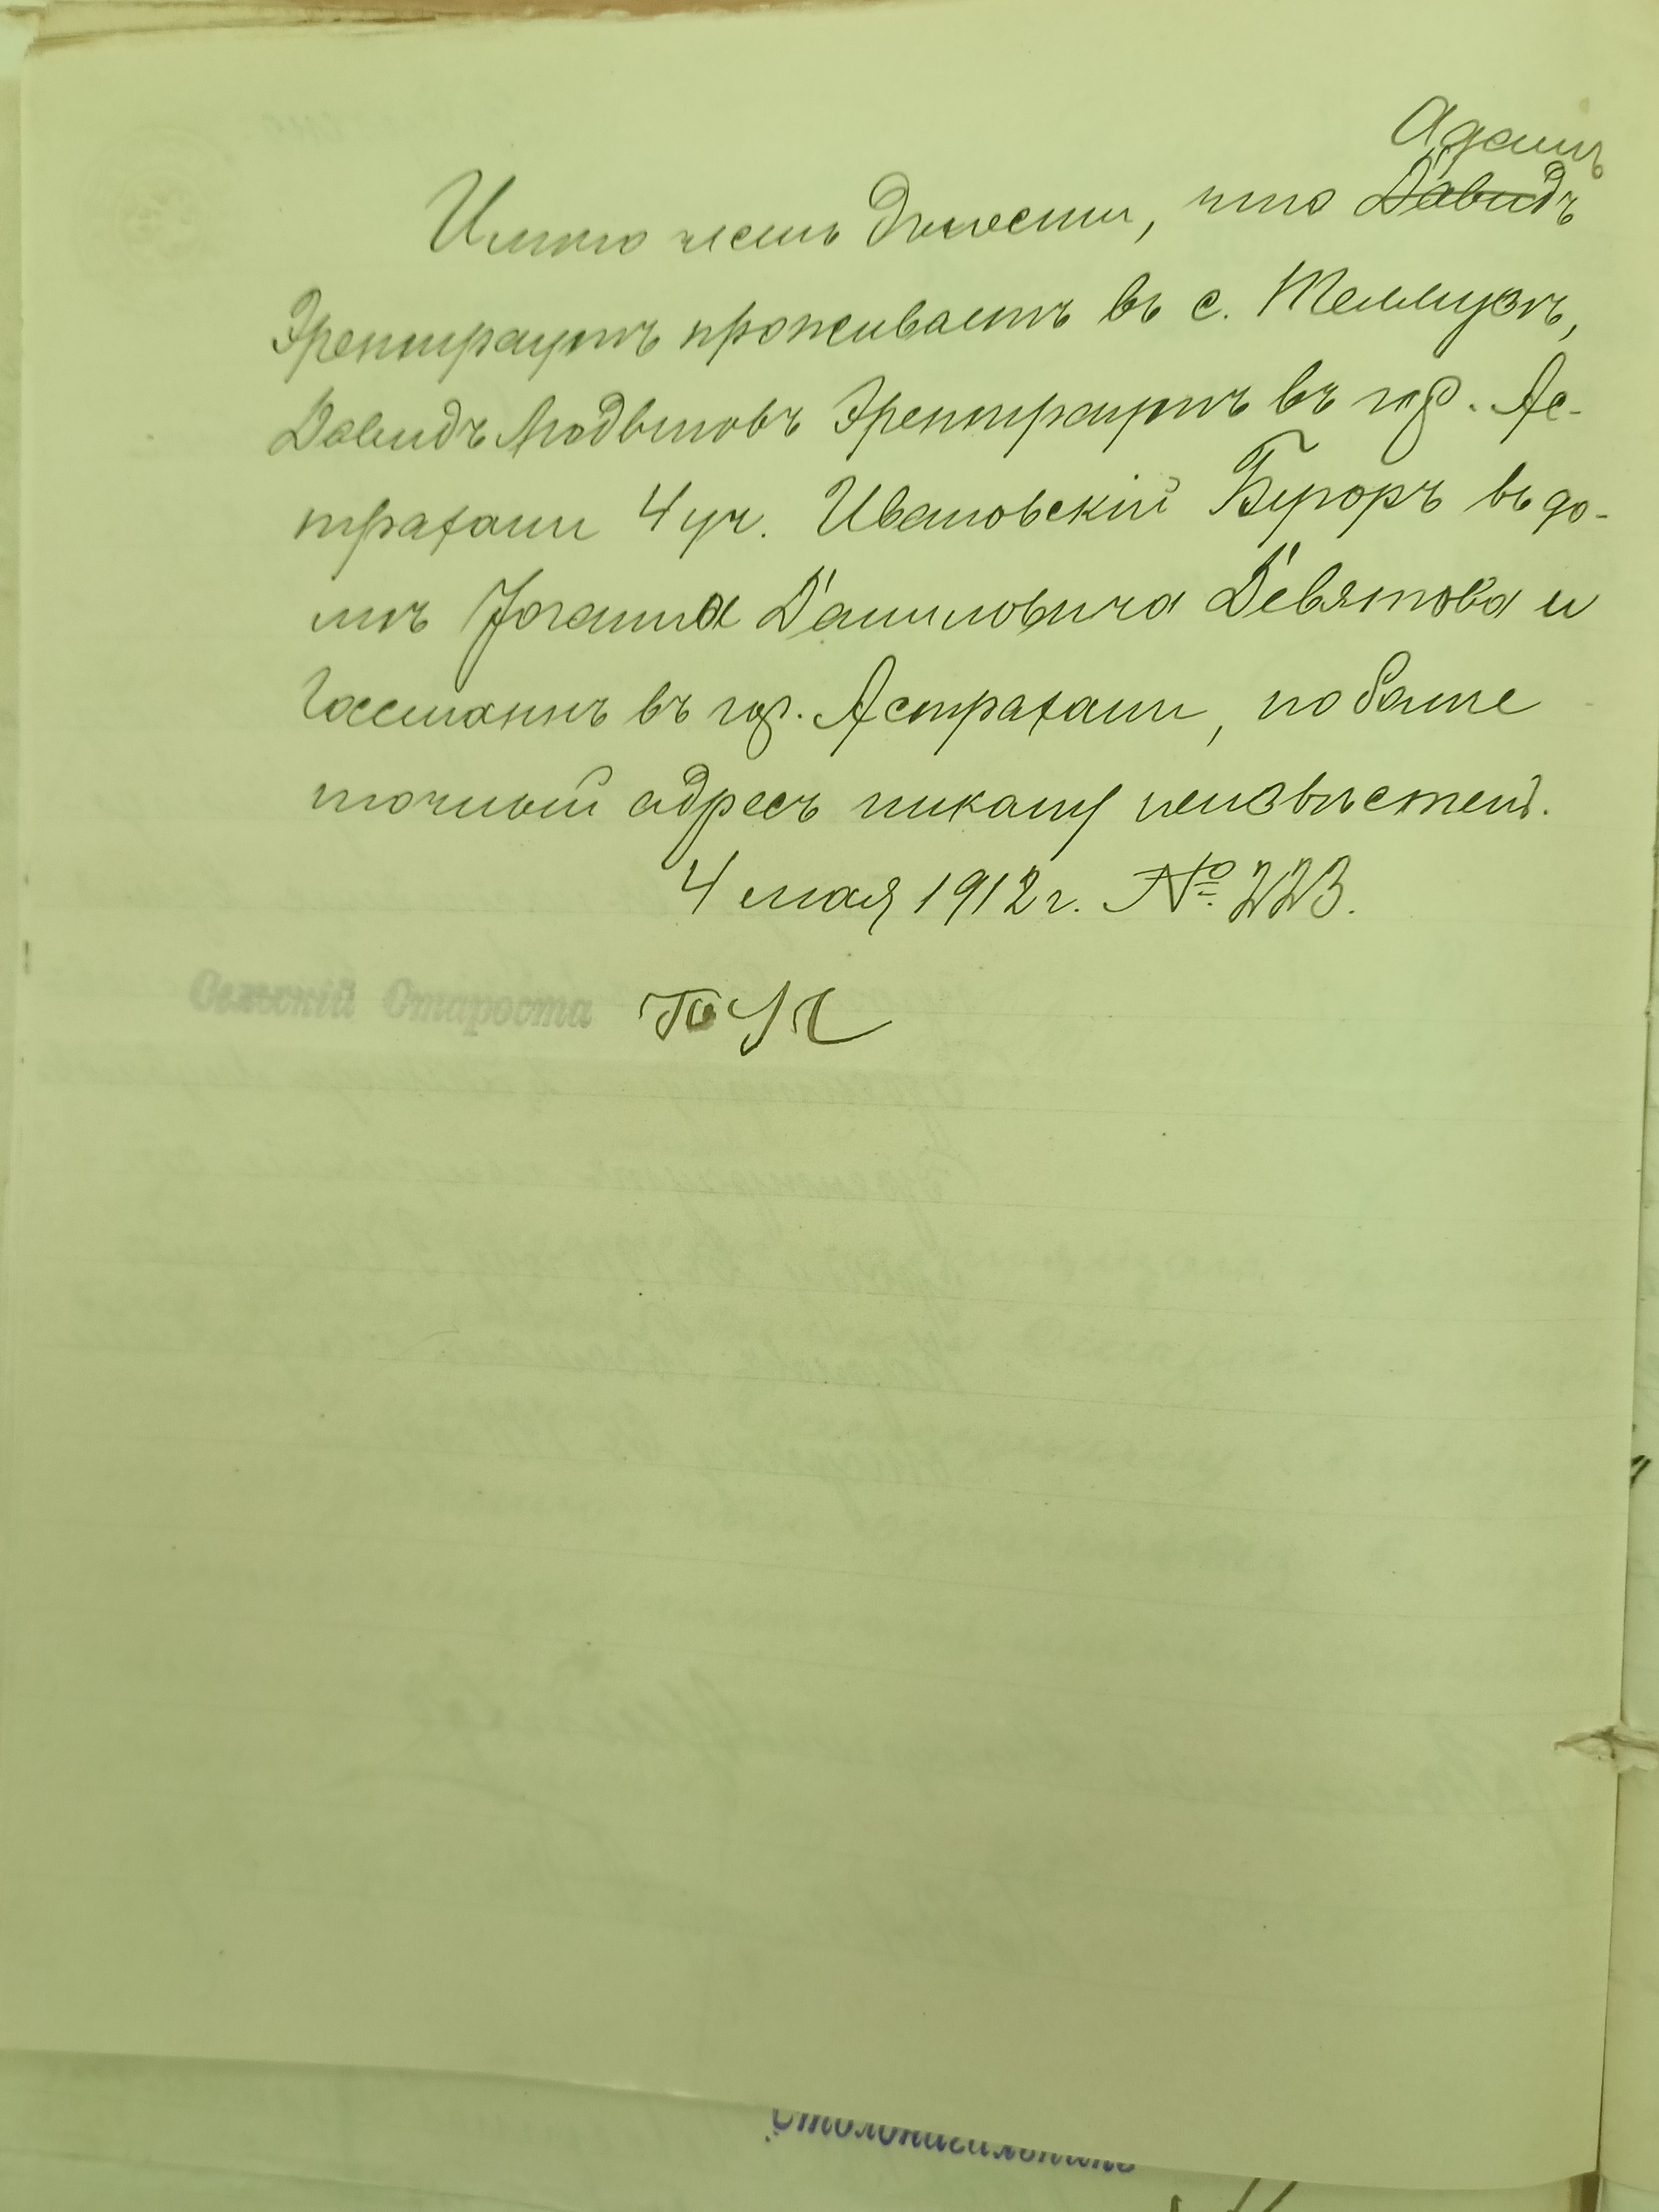 Адамъ
Имѣю честь донести, что Давидъ
Эрентраутъ проживаетъ въ с. Телляузѣ,
Давидъ Людвиговъ Эрентраутъ въ гор. Ас-
трахани 4 уч. Ивановскій Бугоръ въ до-
мѣ Іоганна Даниловича Девятова и
Гассманнъ въ гор. Астрахани, но болѣе
точный адресъ никому неизвѣстенъ.
4 мая 1912 г. № 223.
Сельскій Староста